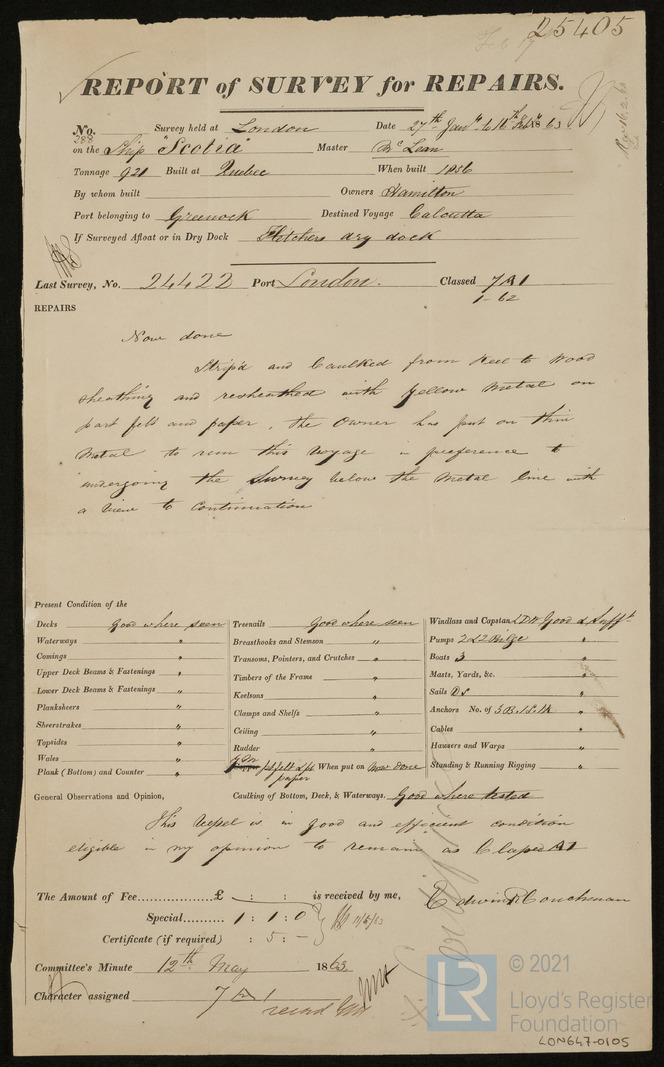 25405
REPORT of SURVEY for REPAIRS.
No. 288 Survey held at London Date 27th Jany to 16th Feby 1863
on the Ship "Scotia" Master McLean
Tonnage 921 Built at Quebec When built 1856
By whom built Owners Hamilton
Port belonging to Greenock Destined Voyage Calcutta
If Surveyed Afloat or in Dry Dock Fletchers dry dock
Last Survey, No. 24422 Port London. Classed 7 A 1
1-62
REPAIRS
Now done
Strip'd and Caulked from Keel to Wood
sheathing and resheathed with yellow Metal on
part felt and paper, the Owner has put on thin
Metal to run this Voyage in preference to
undergoing the Survey below the Metal line with
a view to Continuation
Present Condition of the
Decks Good where seen
Waterways "
Comings "
Upper Deck Beams & Fastenings "
Lower Deck Beams & Fastenings "
Planksheers "
Sheerstrakes "
Topsides "
Wales "
Plank (Bottom) and Counter "
Treenails Good where seen
Breasthooks and Stemson "
Transoms, Pointers, and Crutches "
Timbers of the Frame "
Keelsons "
Clamps and Shelfs "
Ceiling "
Rudder "
Y M pt felt & pt paper When put on Now done
Caulking of Bottom, Deck, & Waterways. Good where tested
Windlass and Capstan Good & Sufft
Pumps 2 & 2 Bilge "
Boats 3 "
Masts, Yards, &c. "
Sails "
Anchors No. of 3B. 1S. 1K "
Cables "
Hawsers and Warps "
Standing & Running Rigging "
General Observations and Opinion,
This Vessel is in good and efficient condition
eligible in my opinion to remain as Classed A1
The Amount of Fee.................£ : : is received by me,
Special.......... 1 : 1 : 0
Edwin Couchman
Certificate (if required) : 5 : -
Committee's Minute 12th May 1863
Character assigned 7 A 1
© 2021
LR
Lloyd's Register
Foundation
LON647-0105